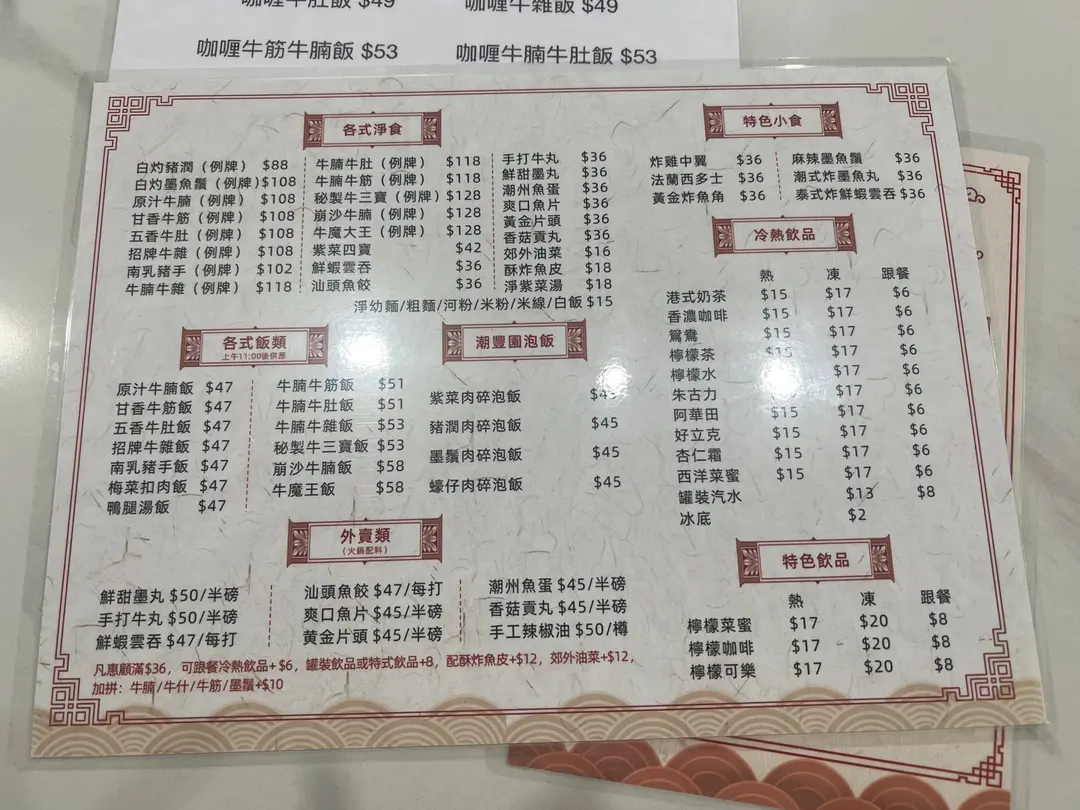 咖喱牛肚飯 $49 咖喱牛雜飯 $49
咖喱牛筋牛腩飯 $53 咖喱牛腩牛肚飯 $53
各式淨食
白灼豬潤（例牌） $88
白灼墨魚鬚（例牌）$108
原汁牛腩（例牌） $108
甘香牛筋（例牌） $108
五香牛肚（例牌） $108
招牌牛雜（例牌） $108
南乳豬手（例牌） $102
牛腩牛雜（例牌） $118
牛腩牛肚（例牌） $118
牛腩牛筋（例牌） $118
秘製牛三寶（例牌）$128
崩沙牛腩（例牌） $128
牛魔大王（例牌） $128
紫菜四寶 $42
鮮蝦雲吞 $36
汕頭魚餃 $36
手打牛丸 $36
鮮甜墨丸 $36
潮州魚蛋 $36
爽口魚片 $36
黃金片頭 $36
香菇貢丸 $36
郊外油菜 $16
酥炸魚皮 $18
淨紫菜湯 $18
淨幼麵/粗麵/河粉/米粉/米線/白飯 $15
特色小食
炸雞中翼 $36
法蘭西多士 $36
黃金炸魚角 $36
麻辣墨魚鬚 $36
潮式炸墨魚丸 $36
泰式炸鮮蝦雲吞 $36
冷熱飲品
熱 凍 跟餐
港式奶茶 $15 $17 $6
香濃咖啡 $15 $17 $6
鴛鴦 $15 $17 $6
檸檬茶 $15 $17 $6
檸檬水 $17 $6
朱古力 $17 $6
阿華田 $15 $17 $6
好立克 $15 $17 $6
杏仁霜 $15 $17 $6
西洋菜蜜 $15 $17 $6
罐裝汽水 $13 $8
冰底 $2
各式飯類
上午11:00後供應
原汁牛腩飯 $47
甘香牛筋飯 $47
五香牛肚飯 $47
招牌牛雜飯 $47
南乳豬手飯 $47
梅菜扣肉飯 $47
鴨腿湯飯 $47
牛腩牛筋飯 $51
牛腩牛肚飯 $51
牛腩牛雜飯 $53
秘製牛三寶飯 $53
崩沙牛腩飯 $58
牛魔王飯 $58
潮豐園泡飯
紫菜肉碎泡飯
豬潤肉碎泡飯 $45
墨鬚肉碎泡飯 $45
蠔仔肉碎泡飯 $45
外賣類
（火鍋配料）
鮮甜墨丸 $50/半磅
手打牛丸 $50/半磅
鮮蝦雲吞 $47/每打
汕頭魚餃 $47/每打
爽口魚片 $45/半磅
黃金片頭 $45/半磅
潮州魚蛋 $45/半磅
香菇貢丸 $45/半磅
手工辣椒油 $50/樽
特色飲品
熱 凍 跟餐
檸檬菜蜜 $17 $20 $8
檸檬咖啡 $17 $20 $8
檸檬可樂 $17 $20 $8
凡惠顧滿$36，可跟餐冷熱飲品+ $6，罐裝飲品或特式飲品+8，配酥炸魚皮+$12，郊外油菜+$12，
加拼：牛腩/牛什/牛筋/墨鬚+$10